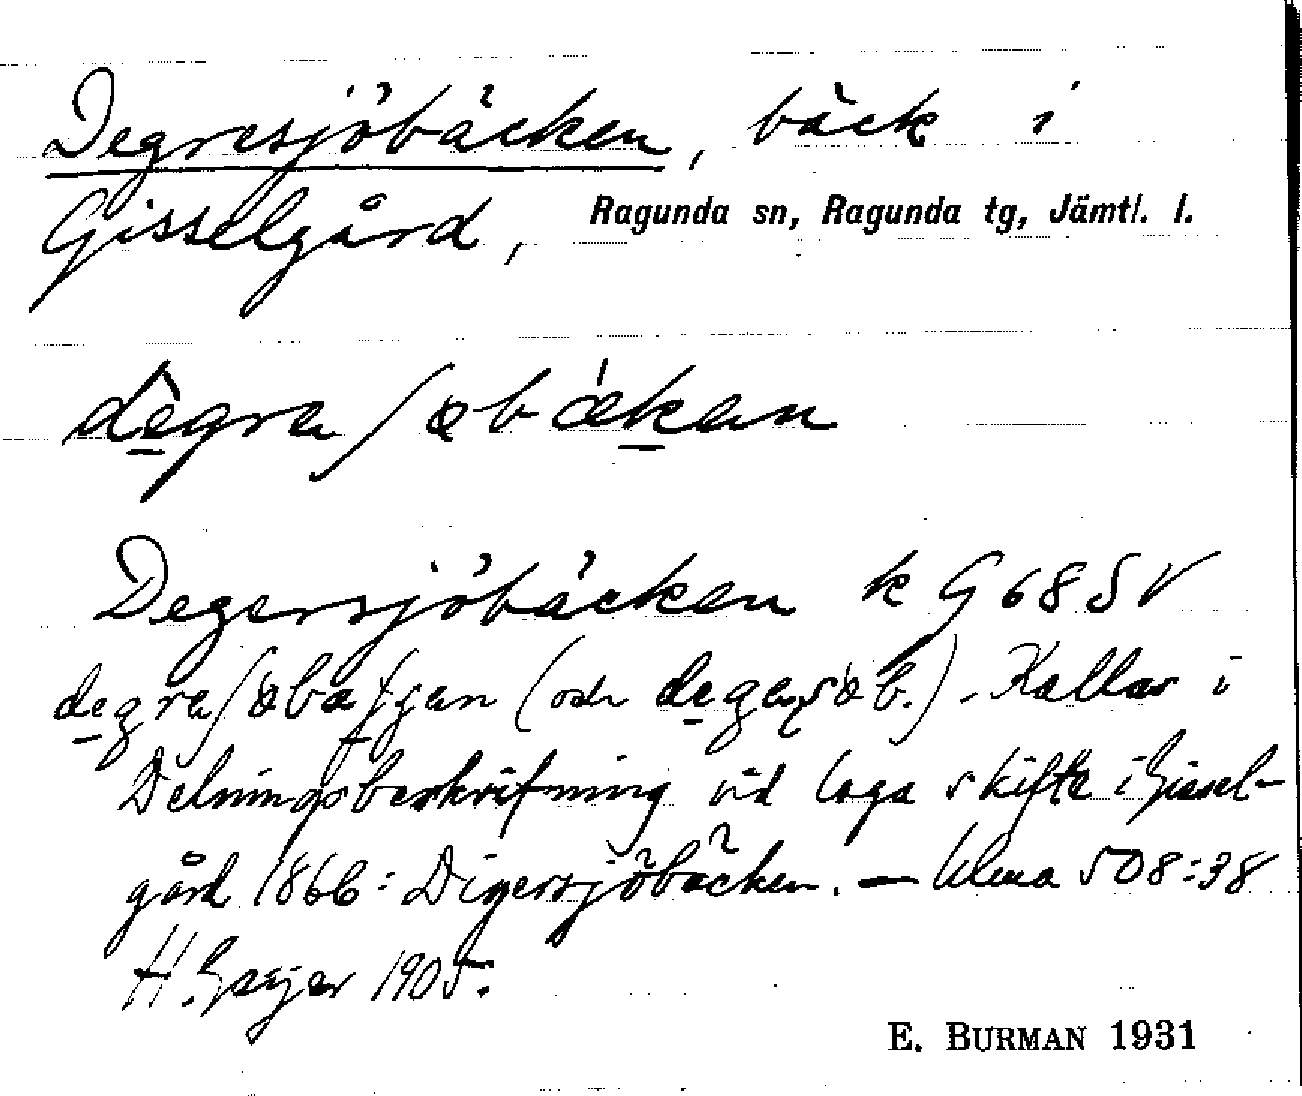 Degresjöbäcken, bäck i
Gisselgård, Ragunda sn, Ragunda tg, Jämtl. l.
degra/øbækan
Degersjöbäcken k G 68 SV
degra/øba (och b.) - Kallas i
Delningsbeskrifning vid laga skifte i Gissel-
gård 1866: Digersjöbäcken. — Ulma 508:38
H. Geijer 1905.
E. BURMAN 1931